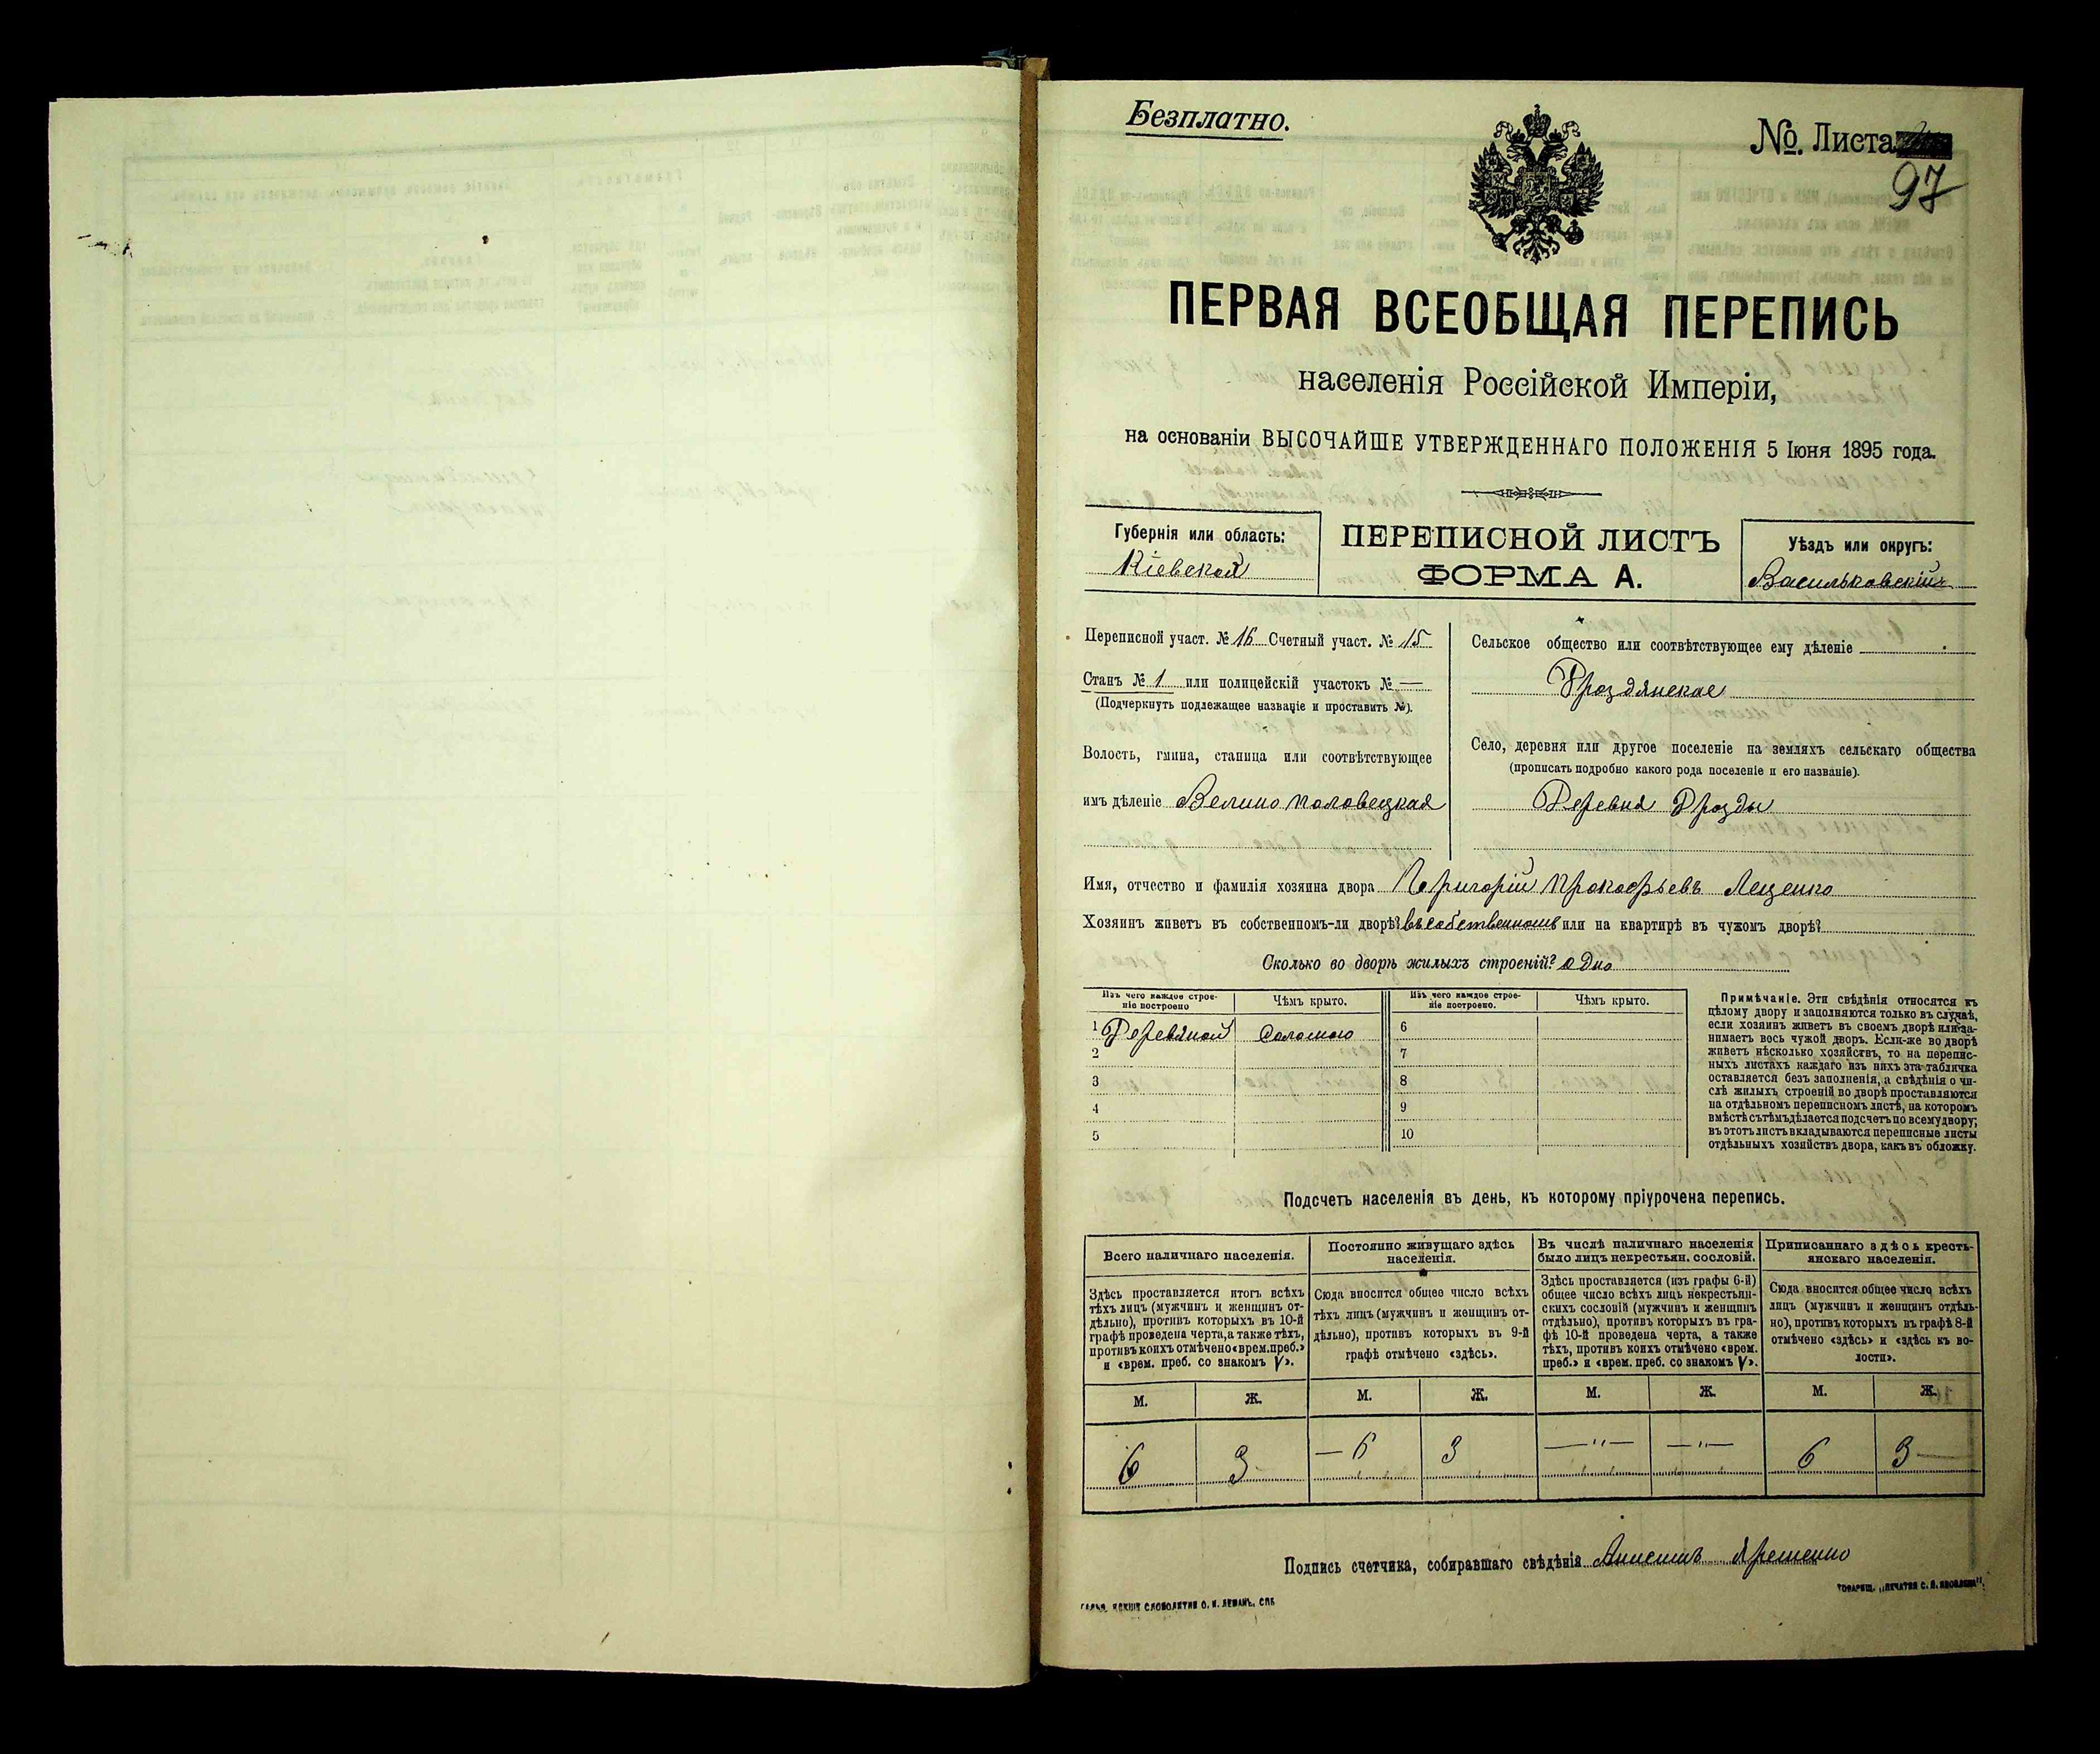 Безплатно.
№. Листа
97
ПЕРВАЯ ВСЕОБЩАЯ ПЕРЕПИСЬ
населенія Россійской Имперіи,
на основаніи ВЫСОЧАЙШЕ УТВЕРЖДЕННАГО ПОЛОЖЕНІЯ 5 Іюня 1895 года.
Губернія или область:
Кіевская
ПЕРЕПИСНОЙ ЛИСТЪ
ФОРМА А.
Уѣздъ или округъ:
Васильковскій
Переписной участ. № 16 Счетный участ. № 15
Станъ № 1 или полицейскій участокъ № —
(Подчеркнуть подлежащее названіе и проставить №).
Волость, гмина, станица или соотвѣтствующее
имъ дѣленіе Велико половецкая
Сельское общество или соотвѣтствующее ему дѣленіе
Дроздянское
Село, деревня или другое поселеніе на земляхъ сельскаго общества
(прописать подробно какого рода поселеніе и его названіе).
Деревня Дрозды
Имя, отчество и фамилія хозяина двора Григорій Прокофьевъ Лещенко
Хозяин живетъ въ собственномъ-ли дворѣ? въ собственномъ или на квартирѣ въ чужомъ дворѣ?
Сколько во дворѣ жилыхъ строеній? одно
Изъ чего каждое строе-
ніе построено
Чѣмъ крыто.
Изъ чего каждое строе-
ніе построено.
Чѣмъ крыто.
1 Деревяной Соломою 6
2 7
3 8
4 9
5 10
Примѣчаніе. Эти свѣдѣнія относятся къ
цѣлому двору и заполняются только въ случаѣ,
если хозяинъ живетъ въ своемъ дворѣ или за-
нимаетъ весь чужой дворъ. Если-же во дворѣ
живетъ нѣсколько хозяйствъ, то на перепис-
ныхъ листахъ каждаго изъ нихъ эта табличка
оставляется безъ заполненія, а свѣдѣнія о чи-
слѣ жилыхъ строеній во дворѣ проставляются
на отдѣльномъ переписномъ листѣ, на которомъ
вмѣстѣ съ тѣмъ дѣлается подсчетъ по всему двору;
въ этотъ листъ вкладываются переписные листы
отдѣльныхъ хозяйствъ двора, какъ въ обложку.
Подсчетъ населенія въ день, къ которому пріурочена перепись.
Всего наличнаго населенія.
Здѣсь проставляется итогъ всѣхъ
тѣхъ лицъ (мужчинъ и женщинъ от-
дѣльно), противъ которыхъ въ 10-й
графѣ проведена черта, а также тѣхъ,
противъ коихъ отмѣчено «врем. преб.»
и «врем. преб. со знакомъ V».
Постоянно живущаго здѣсь
населенія.
Сюда вносится общее число всѣхъ
тѣхъ лицъ (мужчинъ и женщинъ от-
дѣльно), противъ которыхъ въ 9-й
графѣ отмѣчено «здѣсь».
Въ числѣ наличнаго населенія
было лицъ некрестьян. сословій.
Здѣсь проставляется (изъ графы 6-й)
общее число всѣхъ лицъ некрестьян-
скихъ сословій (мужчинъ и женщинъ
отдѣльно), противъ которыхъ въ гра-
фѣ 10-й проведена черта, а также
тѣхъ, противъ коихъ отмѣчено «врем.
преб.» и «врем. преб. со знакомъ V».
Приписаннаго здѣсь кресть-
янскаго населенія.
Сюда вносится общее число всѣхъ
лицъ (мужчинъ и женщинъ отдѣль-
но), противъ которыхъ въ графѣ 8-й
отмѣчено «здѣсь» и «здѣсь къ во-
лости».
М. Ж. М. Ж. М. Ж. М. Ж.
6 3 — 6 3 —"— —"— 6 3 —
Подпись счетчика, собиравшаго свѣдѣнія
СЛОВОЛИТНИ О. И. ЛЕМАНЪ, СПБ
ТОВАРИЩ. „ПЕЧАТНЯ С. П. ЯКОВЛЕВА".